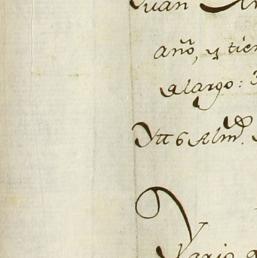 Juan
año, y tien
alargo:
Ytt 6 Alm.
Vario